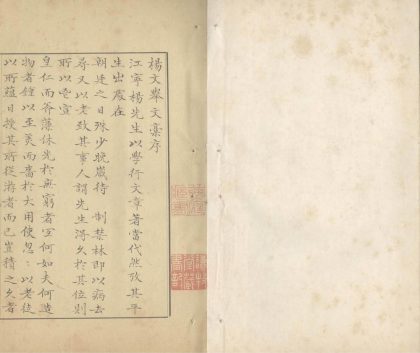 楊文舉文稾序
江寧楊先生以學術文章著當代然攷其平
生出處在
朝廷之日殊少晚歲待制禁林即以病去
尋又以老致其事人謂先生得久於其位則
所以宣
皇仁而黼藻休光於無窮者宜何如夫何造
物者鍾以至美而嗇於大用使忽以老徒
以所蘊日授其所從游者而已豈積之久者